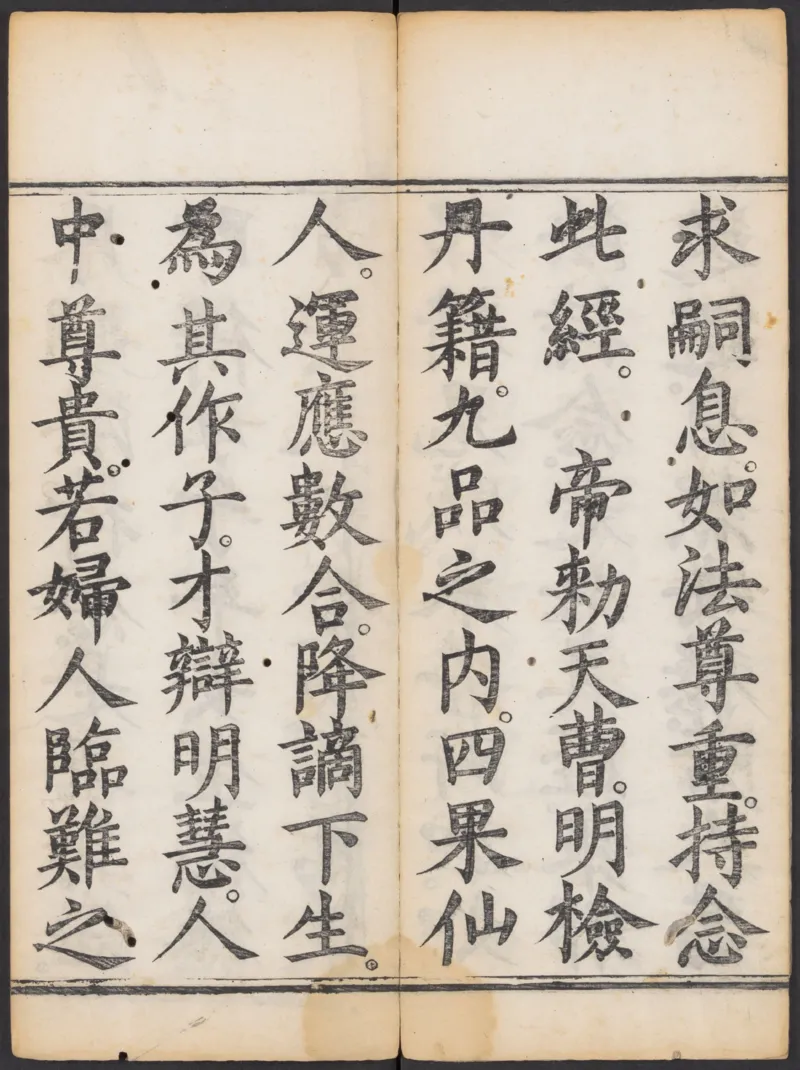 求嗣息。如法尊重。持念
此經。　帝勑天曹。明檢
丹籍。九品之内。四果仙
人。運應數合。降謫下生。
為其作子。才辯明慧。人
中尊貴。若婦人臨難之